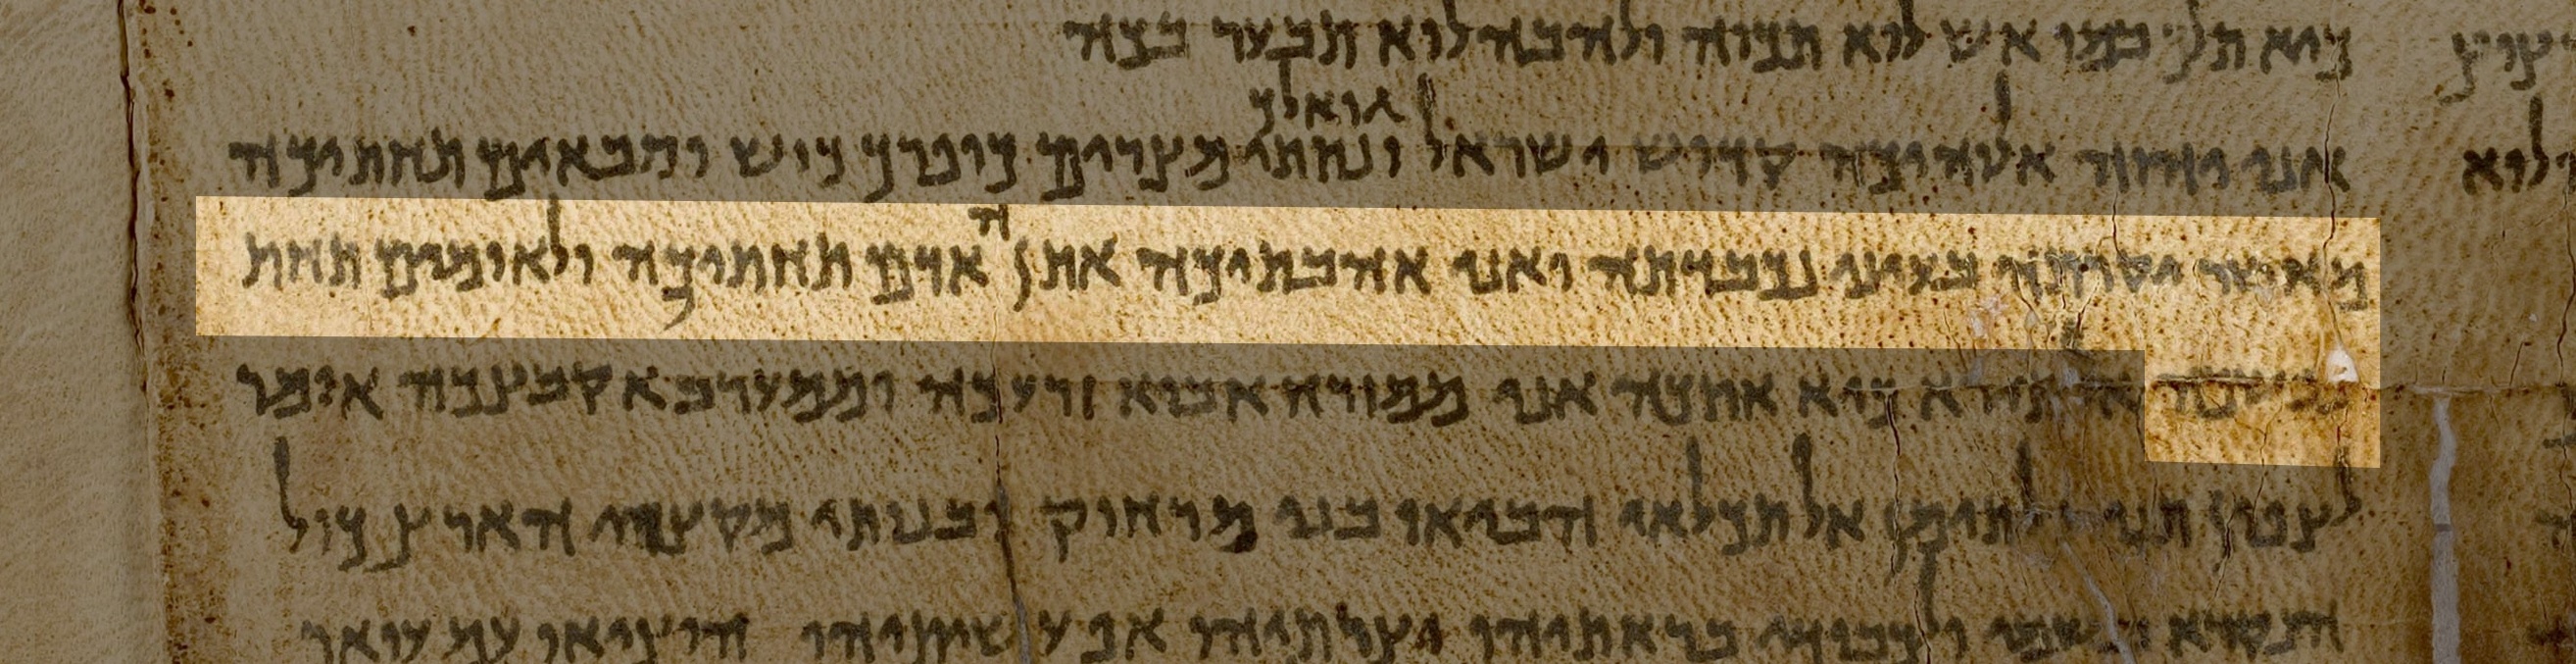 כיא תלך במו אש לוא תכוה ולהבה לוא תבער בכה
גואלך
אני יהוה אלוהיכה קדוש ישראל ונתתי מצרים כופרך כוש וסבאים תחתיכה
מאשר יקרתה בעיני נכבדתה ואני אהבתיכה אתן האדם תחתיכה ולאומים תחת
נפשכה אל תירא כיא אתכה אני ממזרח אביא זרעכה וממערב אקבצכה אומר
לצפון תני ולתימן אל תכלאי הביאו בני מרחוק ובנותי מקצוי הארץ כול
הנקרא בשמי ולכבודי בראתיהו יצרתיהו אפ עשיתיהו הוציאו עם עואר